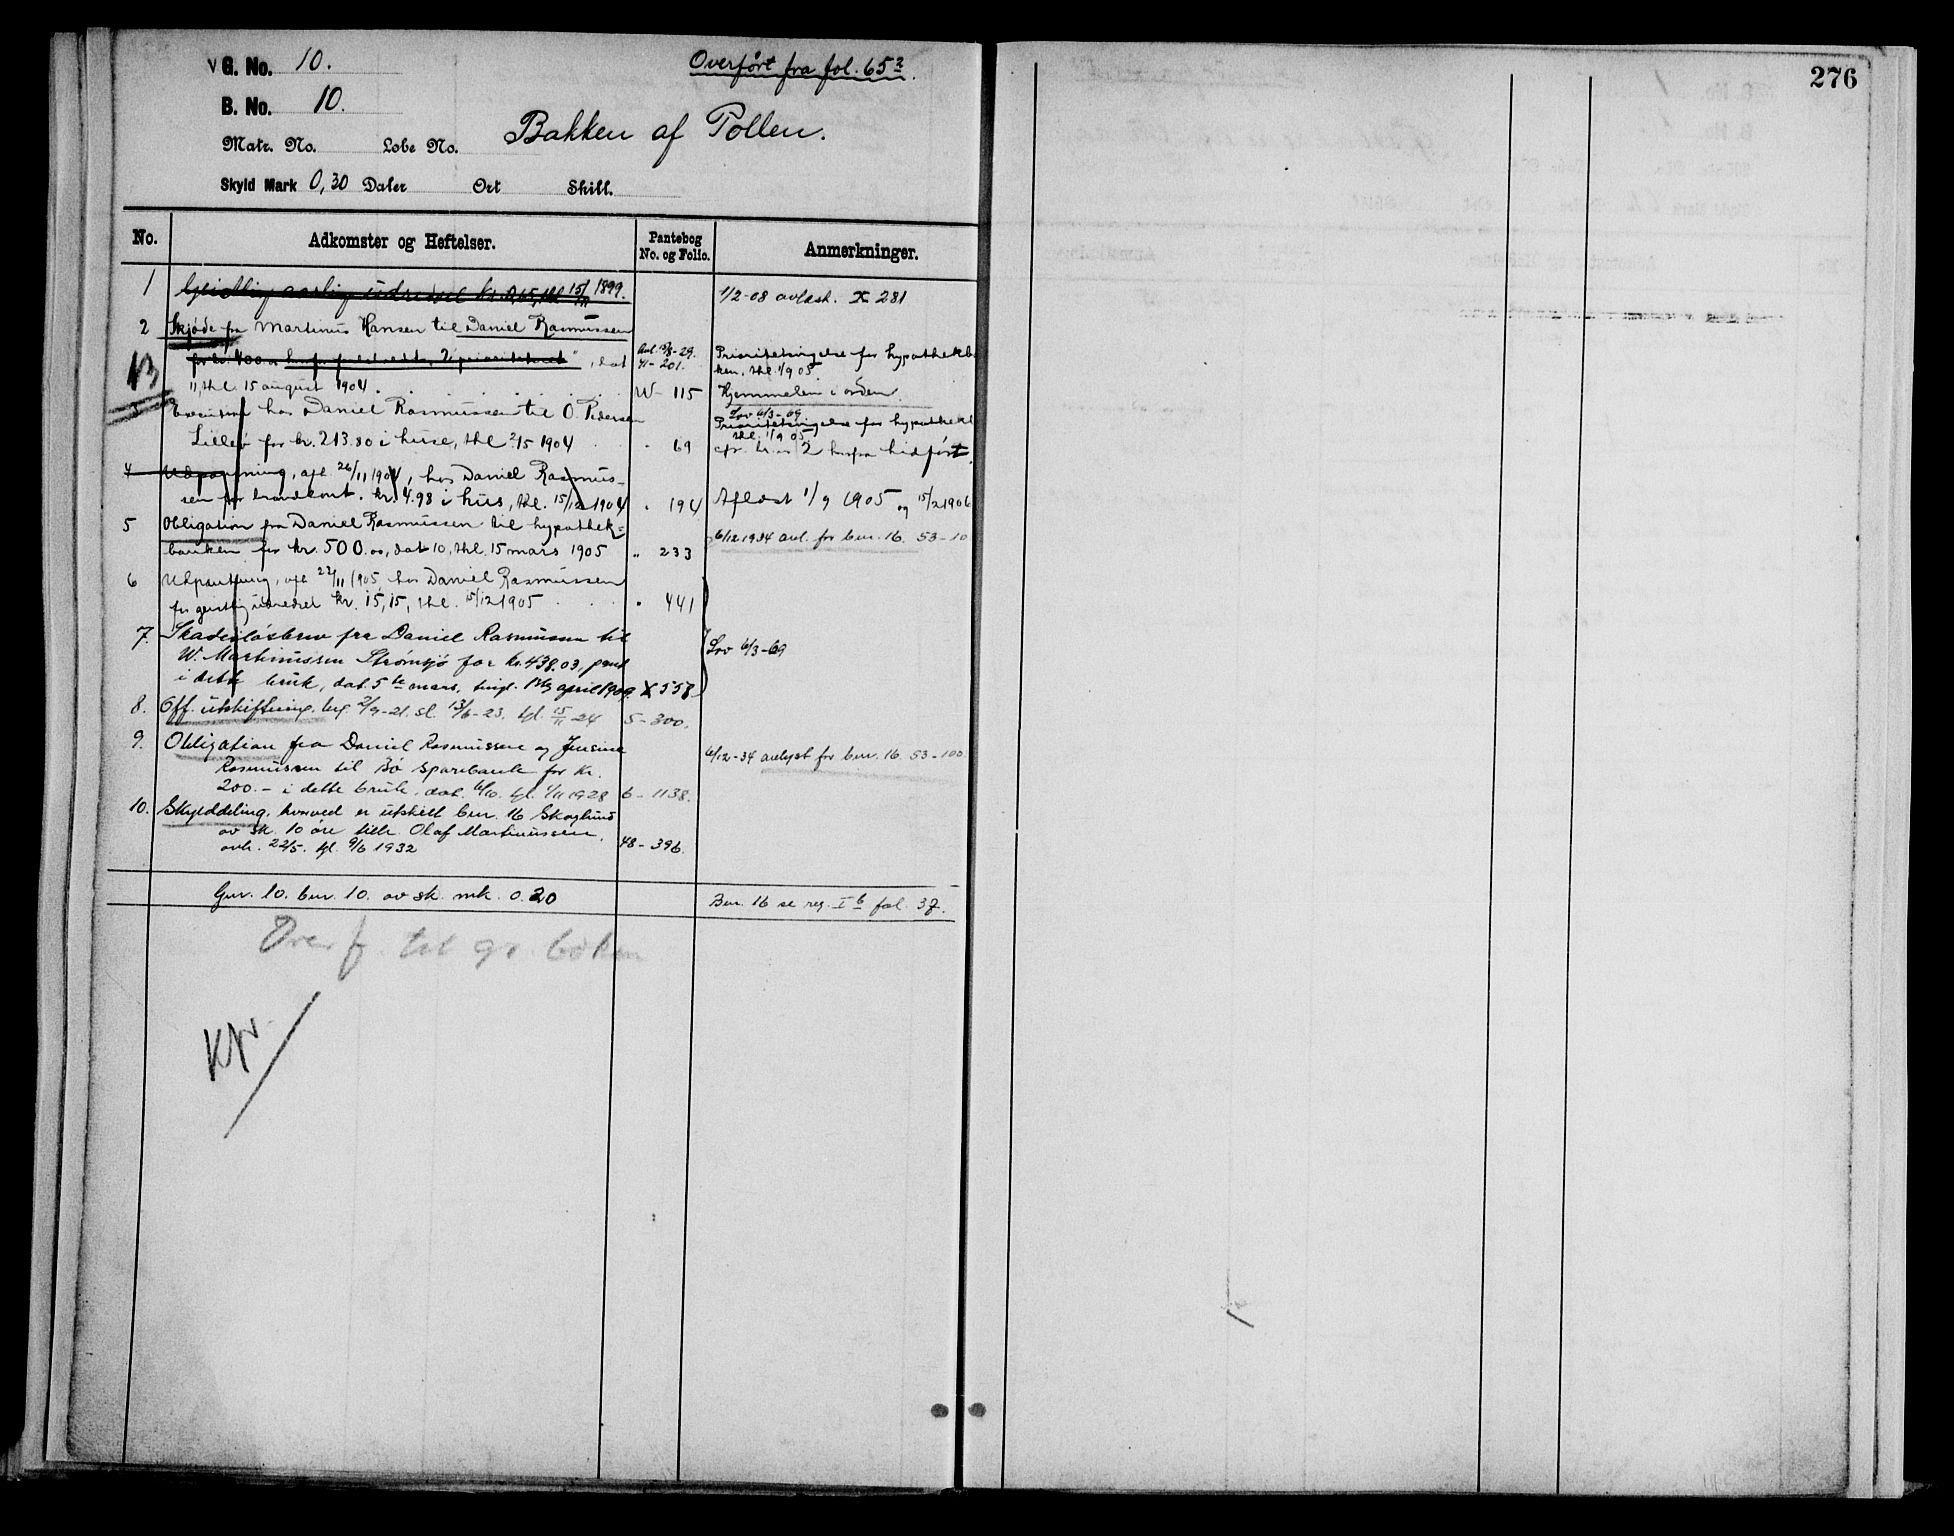 G. No. 10.
Overført fra fol. 65 3.
B. No. 10.
Bakken af Pollen.
Matr. No. Løbe No.
Skyld Mark 0,30 Daler Ort Skill.
276
No. Adkomster og Heftelser. Pantebog No. og Folio. Anmerkninger.
1 Geistlig aarlig udredsel kr. 15/11 1899. 1/2-08 avlæst. X 281
2 Skjøde fra Martinus Hansen til Daniel Rasmussen
for kr. 400.00 , dat 41-201. Prioritetsvigelse for hypothekb
11, thl. 15 august 1904. W 115 ken, thl. 1/9 05
Hjemmelen i orden.
3 Execution hos Daniel Rasmussen til O. Pedersen Lov 6/3-69
Prioritetsvigelse for hypothekb
thl. 1/9 05
Lillesjø for kr. 213.80 i huse, thl 2/5 1904 " 69 cfr. hidført.
4 Udpantning, afl 26/11 1904, hos Daniel Rasmus-
sen for brandkont. kr. 4.98 i hus, thl. 15/12 1904 " 194 Aflæst 1/9 1905 og 15/2 1906
5 Obligation fra Daniel Rasmussen til hypothek-
banken for kr. 500.00, dat 10, thl. 15 mars 1905 " 233 6/12 1934 avl. for bnr. 16. 53-10
6 Udpantning, afl 22/11 1905, hos Daniel Rasmussen
for geistlig udredsel kr. 15,15, thl. 15/12 1905 " 441
7. Skadesløsbrev fra Daniel Rasmussen til
W. Martinussen Strømsjø for kr. 438.03, pant Lov 6/3-69
i dette bruk, dat. 5te mars, tingl. april 1909. X 558
8. Off. utskiftning, beg. 2/9-21. sl. 13/6-23. tgl. 15/11 24 5-300.
9. Obligation fra Daniel Rasmussen og Jensine
Rasmussen til Bø Sparebank for kr. 6/12-34 avlyst for bnr. 16 53-100
200.- i dette bruk, dat. 6/10. tgl. 1/11 1928 6-1138.
10. Skylddeling, hvorved er utskilt bnr. 16 Skoglund
av sk. 10 øre tilh. Olaf Martinussen.
avh. 22/5. tgl. 9/6 1932 48-396.
Gnr. 10. bnr. 10. av sk. mk. 0.20 Bnr. 16 se reg. I 6 fol. 37.
Overf. til gr. boken